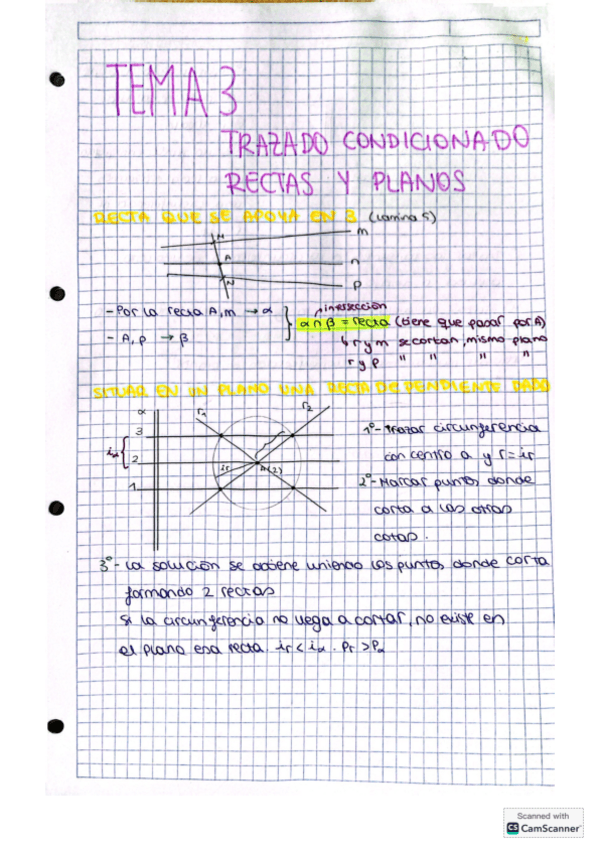 TEMA 3
TRAZADO CONDICIONADO
RECTAS Y PLANOS
RECTA QUE SE APOYA EN 3 (Lamina 5)
M
m
A
n
N
p
- Por la recta A, m → α
- A, p → β
intersección
α ∩ β = recta (tiene que pasar por A)
↳ r y m se cortan, mismo plano
r y p " " " "
SITUAR EN UN PLANO UNA RECTA DE PENDIENTE DADO
α
r1
r2
3
iα
2
ir
A(2)
1
1º- Trazar circunferencia
con centro a y r = ir
2º- Marcar puntos donde
corta a las otras
cotas.
3º- La solución se obtiene uniendo los puntos donde corta
formando 2 rectas
Si la circunferencia no llega a cortar, no existe en
el plano esa recta. ir < iα . Pr > Pα
Scanned with
CS CamScanner